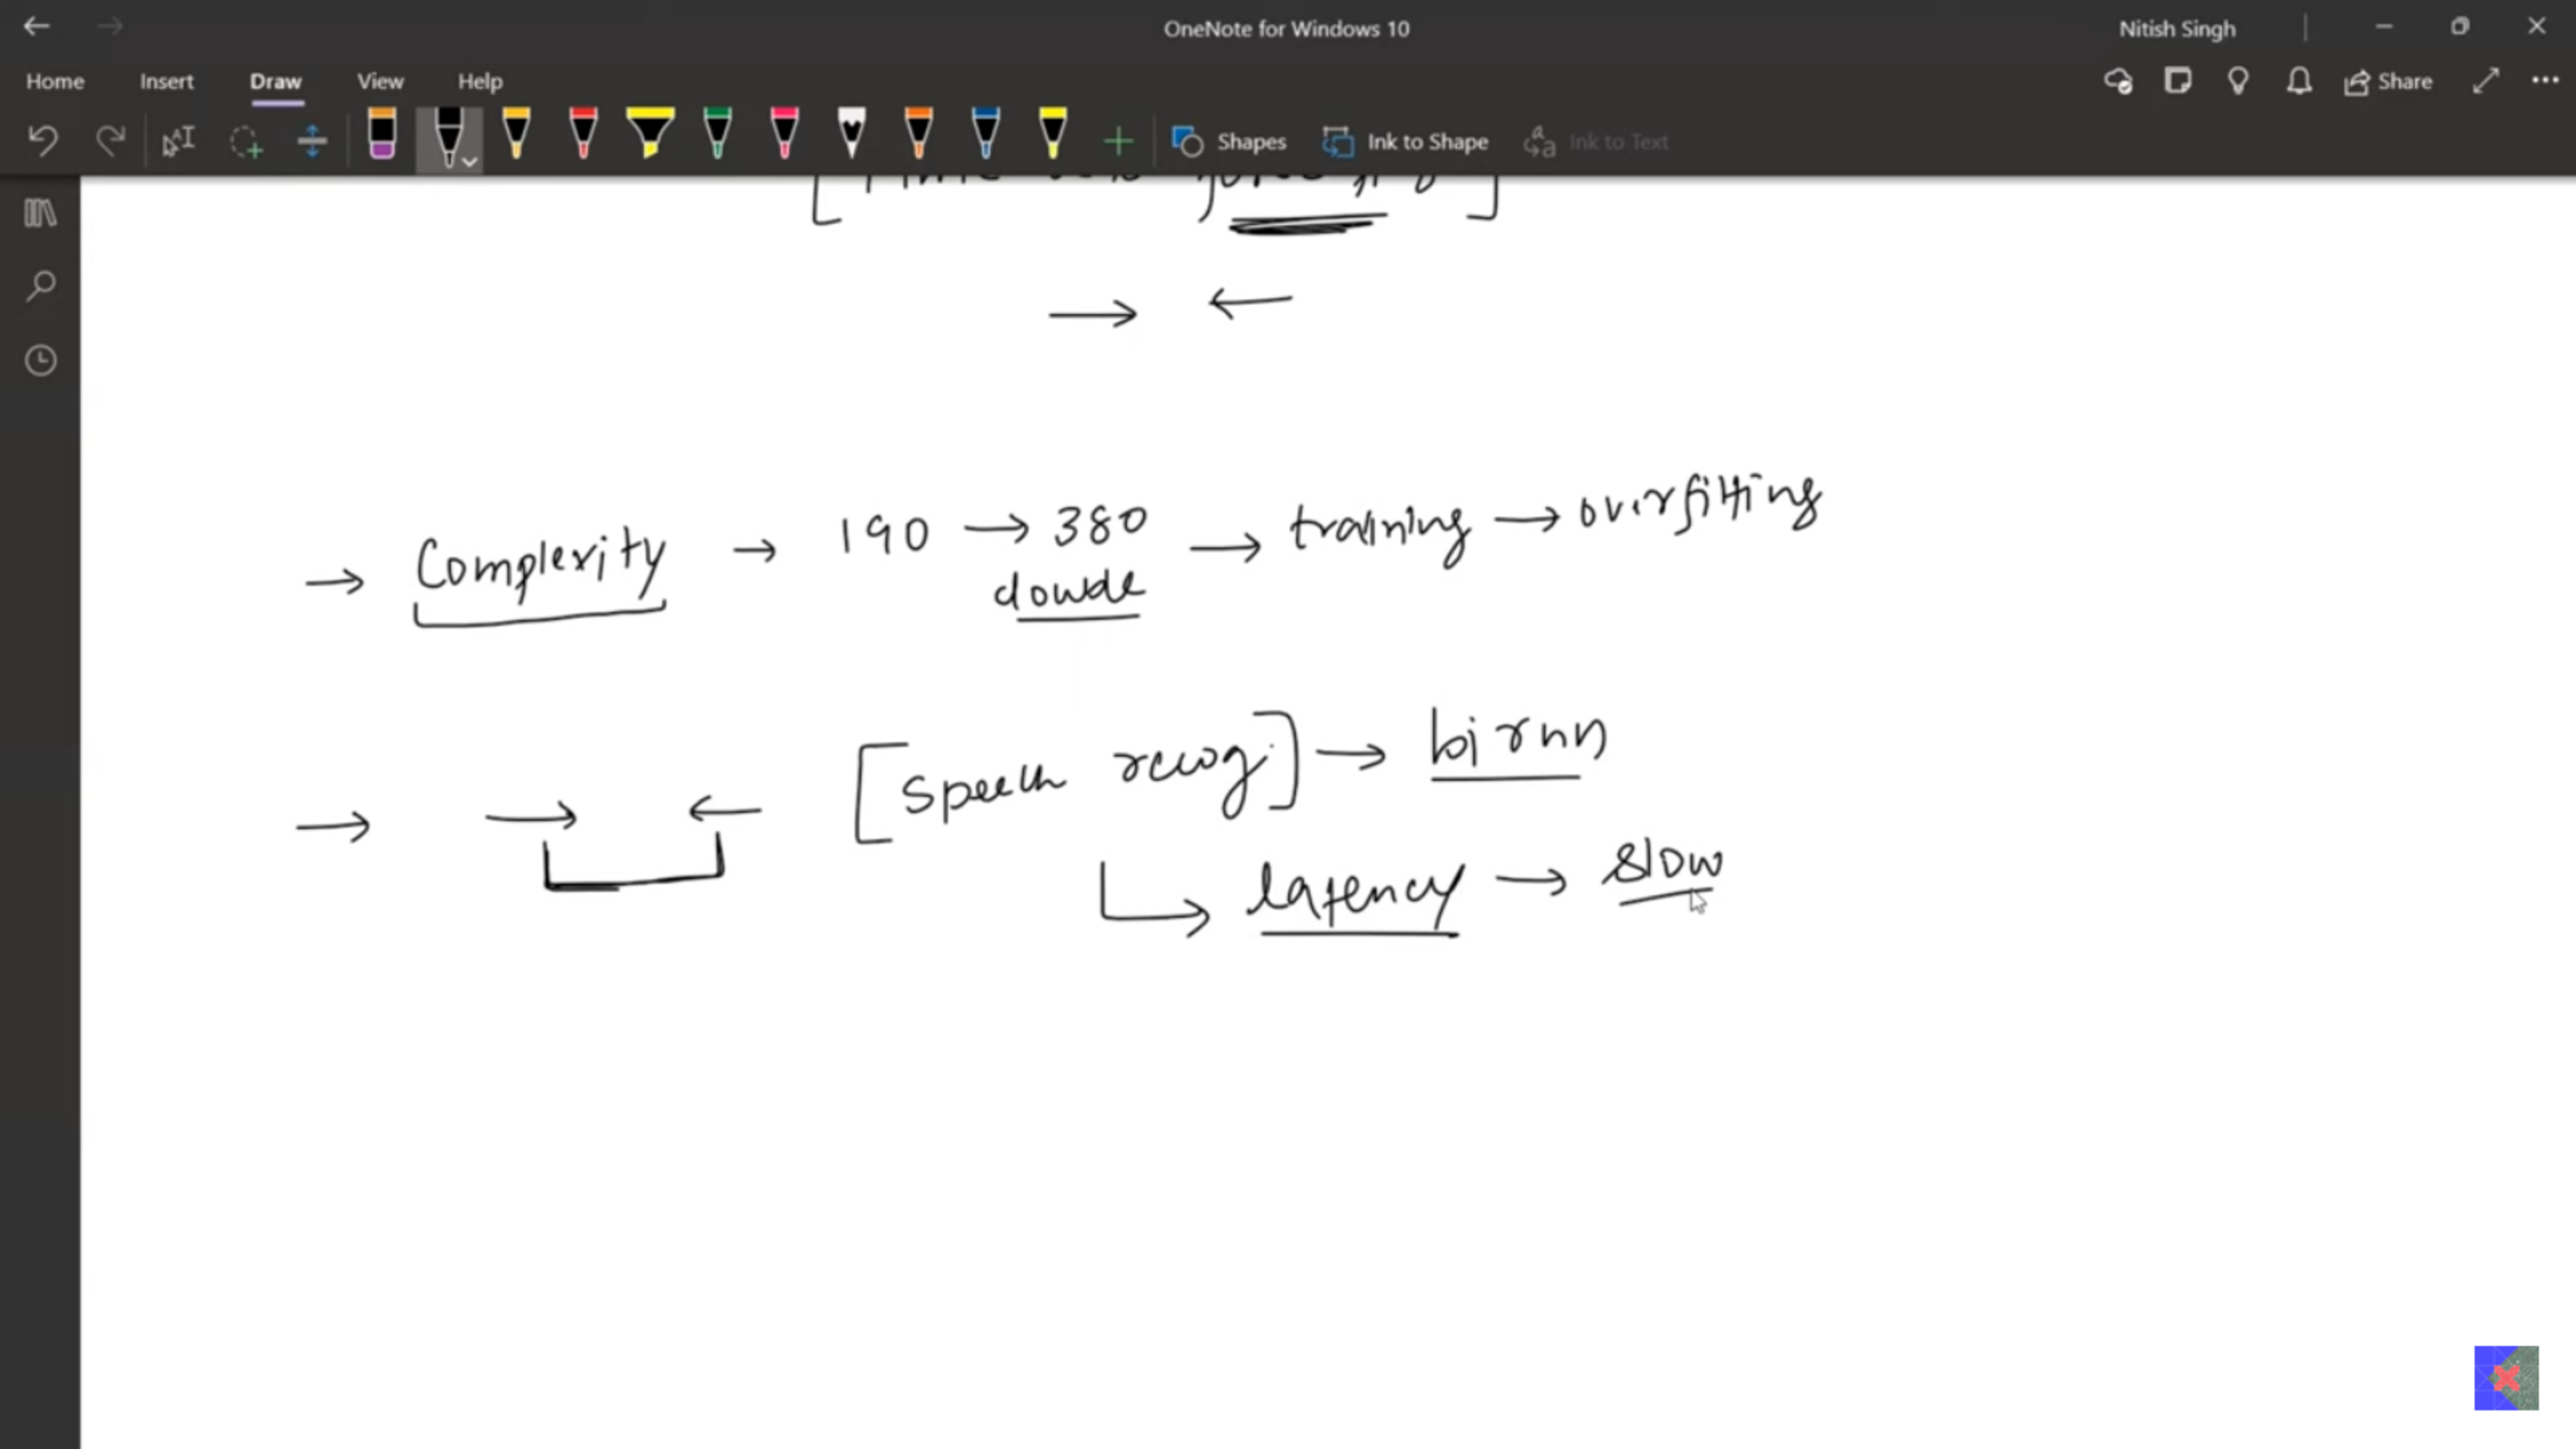 OneNote for Windows 10
Nitish Singh
Home Insert Draw View Help
Share
Shapes Ink to Shape Ink to Text
→ ←
→ Complexity → 190 → 380 → training → overfitting
double
→ → ← [Speech recog.] → birnn
↳ latency → slow